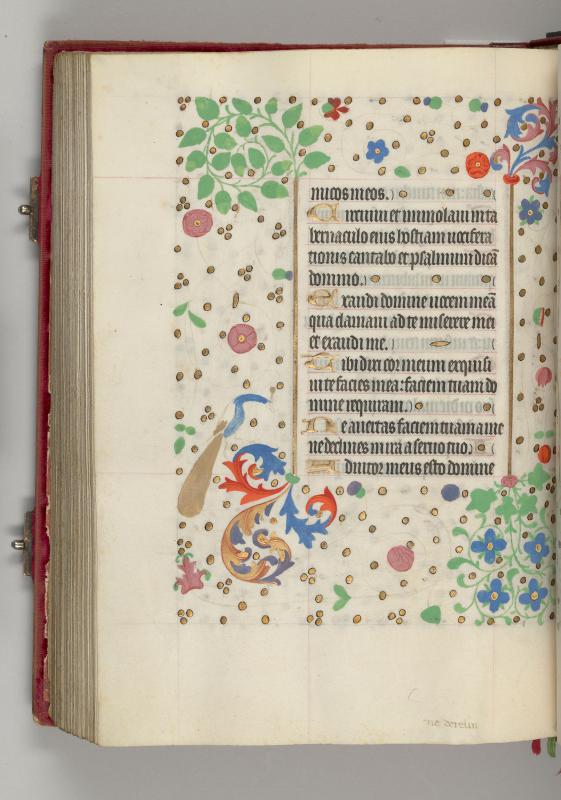 micos meos.
Circuivi et immolavi in ta
bernaculo eius hostiam vocifera
tionis cantabo et psalmum dicā
domino.
Exaudi domine vocem meā
qua clamavi ad te miserere mei
et exaudi me.
Tibi dixit cor meum exquisi
vi te facies mea: faciem tuam do
mine requiram.
Ne avertas faciem tuam a me
ne declines in ira a servo tuo.
Adiutor meus esto domine
ne derelin